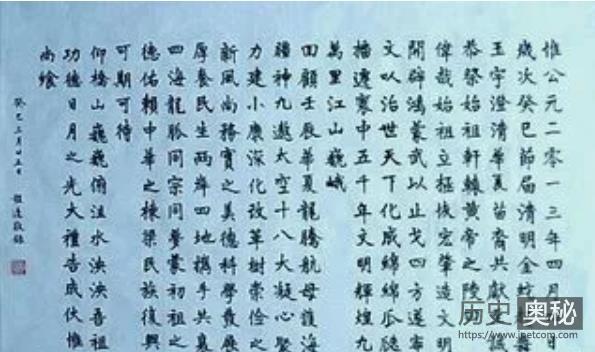 惟公元二〇一三年四月日
歲次癸巳節届清明金蛟
玉宇澄清華夏苗裔共獻
恭祭始祖軒轅黄帝之陵
偉哉始祖立極恢宏肇造文明
開闢鴻蒙武以止戈四方遂寧
文以治世天下化成綿綿瓜瓞
播遷寰中五千年文明輝煌九
萬里江山巍峨
回顧壬辰華夏龍騰航母護海
疆神九遨太空十八大凝心聚
力建小康深化改革樹崇儉之
新風尚務實之美德科學發展
厚養民生兩岸四地攜手共襄
四海龍脈同宗同夢蒙初祖之
德佑賴中華之棟梁民族復興
可期可待
仰橋山巍巍俯沮水泱泱吾祖
功德日月之光大禮告成伏惟
尚饗
癸巳三月廿五日 敬錄
历史奥秘
lpcnet.com